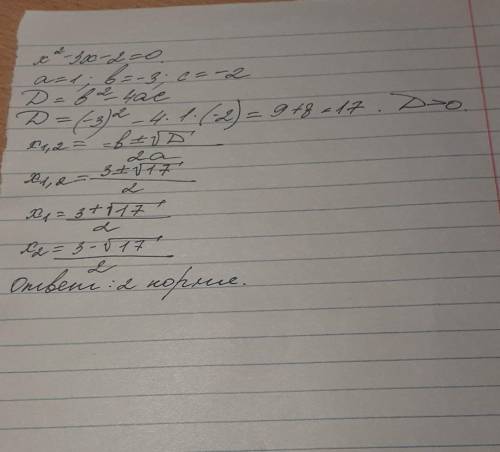 x² - 3x - 2 = 0.
a = 1; b = -3. c = -2
D = b² - 4ac
D = (-3)² - 4 · 1 · (-2) = 9 + 8 = 17. D > 0.
x₁,₂ = -b ± √D / 2a
x₁,₂ = 3 ± √17 / 2
x₁ = 3 + √17 / 2
x₂ = 3 - √17 / 2
Ответ: 2 корня.